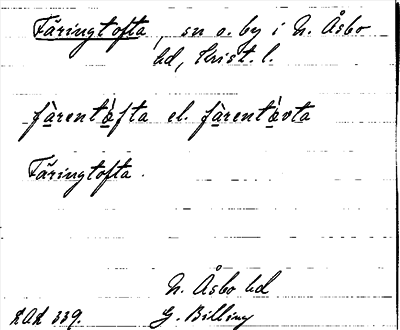 Färingtofta, sn o. by i N. Åsbo
hd, Krist. l.
fàrentáfta el. fàrentávta
Färingtofta.
N. Åsbo hd
KAK 339. G. Billing